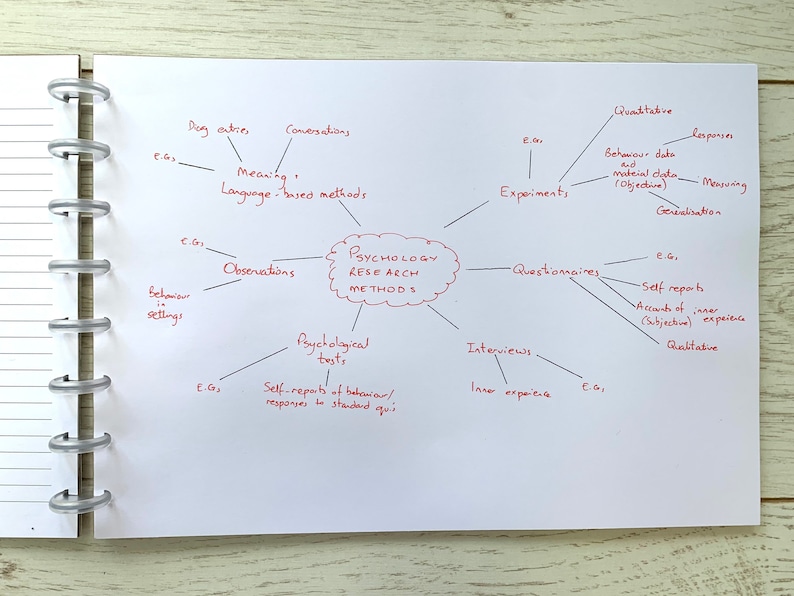 PSYCHOLOGY
RESEARCH
METHODS
Experiments
E.Gs
Quantitative
Behaviour data
and
material data
(Objective)
Responses
Measuring
Generalisation
Questionnaires
E.Gs
Self reports
Accounts of inner
(Subjective) experience
Qualitative
Interviews
Inner experience
E.Gs
Psychological
tests
E.Gs
Self-reports of behaviour/
responses to standard qu.'s
Observations
E.Gs
Behaviour
in
settings
Meaning &
Language-based methods
E.Gs
Diary entries
Conversations